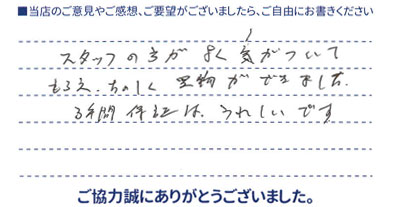 ■当店のご意見やご感想、ご要望がございましたら、ご自由にお書きください
スタッフの方がよく気がついて
もらえ、たのしく買物ができました。
3年間保証は、うれしいです
ご協力誠にありがとうございました。